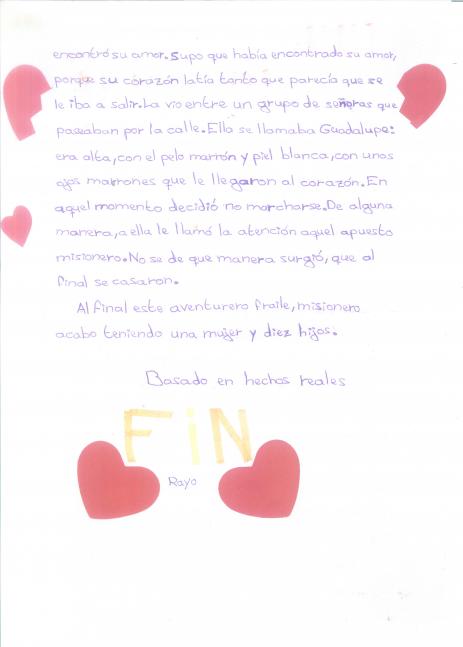 encontró su amor. Supo que había encontrado su amor,
porque su corazón latía tanto que parecía que se
le iba a salir. La vio entre un grupo de señoras que
paseaban por la calle. Ella se llamaba Guadalupe:
era alta, con el pelo marrón y piel blanca, con unos
ojos marrones que le llegaron al corazón. En
aquel momento decidió no marcharse. De alguna
manera, a ella le llamó la atención aquel apuesto
misionero. No se de que manera surgió, que al
final se casaron.
Al final este aventurero fraile, misionero
acabo teniendo una mujer y diez hijos.
Basado en hechos reales
FiN
Rayo